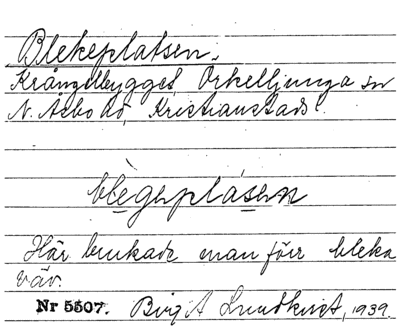 Blekeplatsen.
Krångelbygget, Örkelljunga sn
N. Åsbo hd, Kristianstads l.
blegerplásen
Här brukade man förr bleka
väv.
Nr 5507. Birgit Lundkvist, 1939.